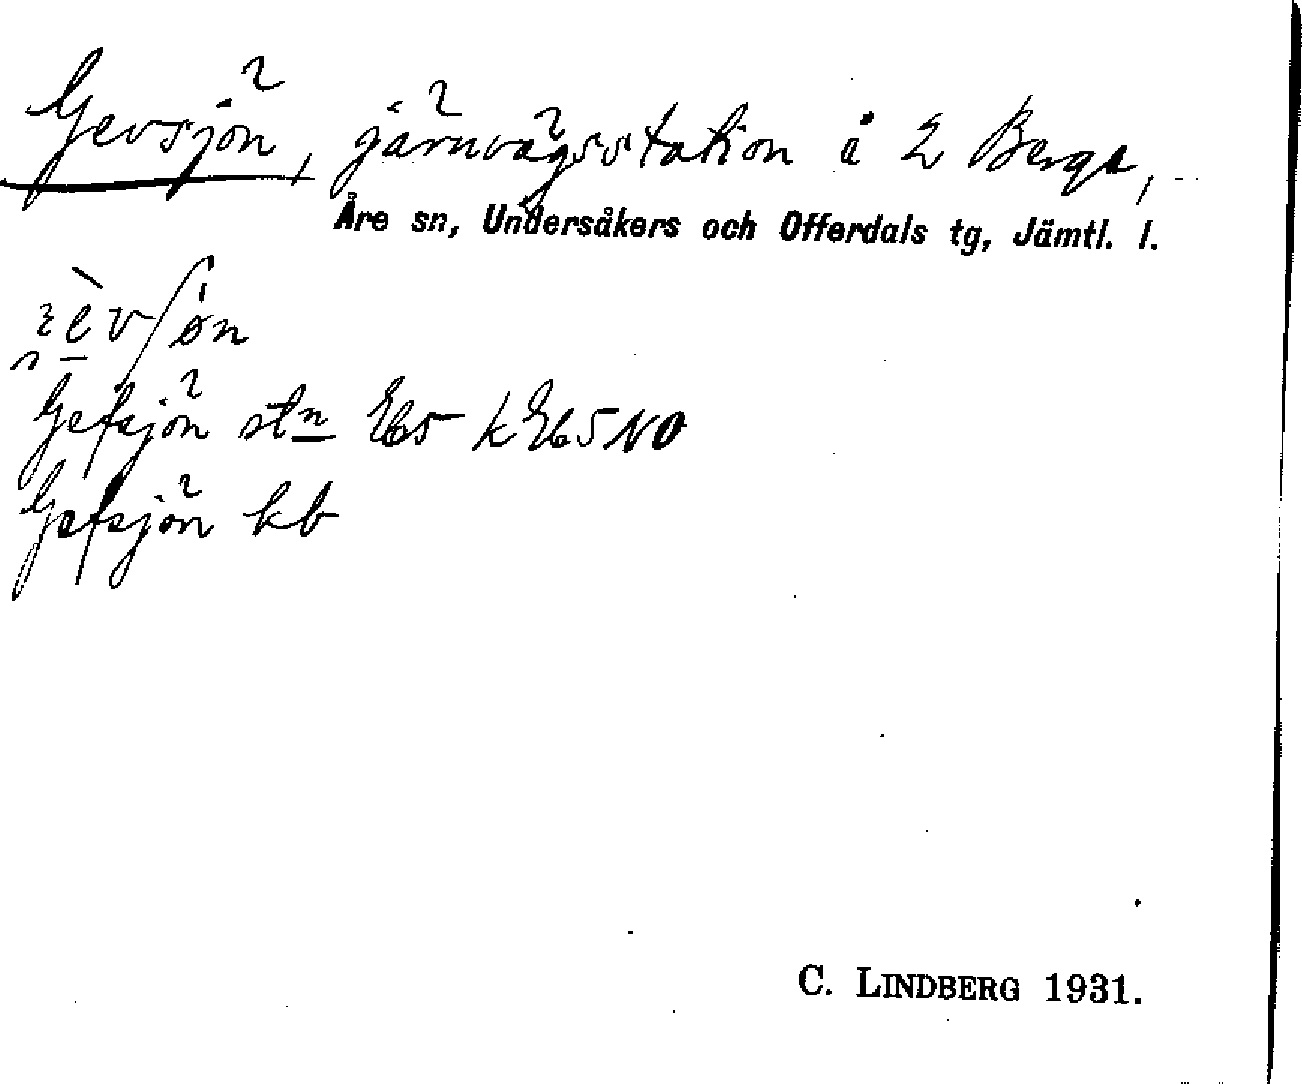 Gevsjön, järnvägsstation å 2 Berge,
Åre sn, Undersåkers och Offerdals tg, Jämtl. l.
Gefsjön stn
Gefsjön kb
C. LINDBERG 1931.